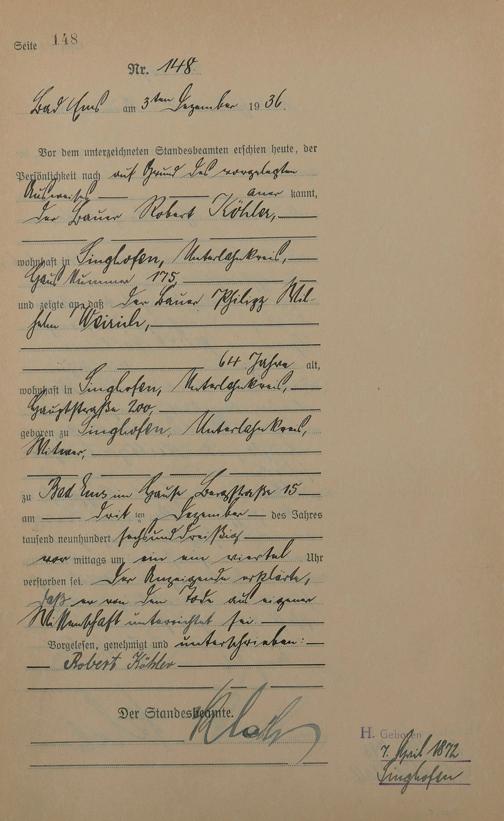 Seite 148
Nr. 148
Bad Ems am 3ten Dezember 1936.
Vor dem unterzeichneten Standesbeamten erschien heute, der
Persönlichkeit nach auf Grund des vorgelegten
Ausweises aner kannt,
der Bauer Robert Köhler,
wohnhaft in Singhofen, Unterlahnkreis,
Haus Nummer 175,
und zeigte an, daß der Bauer Philipp Wil-
helm
64 Jahre alt,
wohnhaft in Singhofen, Unterlahnkreis,
Hauptstraße 200,
geboren zu Singhofen, Unterlahnkreis,
Witwer,
zu Bad Ems im Hause Bergstraße 15
am drit ten Dezember des Jahres
tausend neunhundert sechsunddreißig
vor mittags um ein ein viertel Uhr
verstorben sei. Der Anzeigende erklärte,
daß er von dem Tode aus eigener
Wissenschaft unterrichtet sei.
Vorgelesen, genehmigt und unterschrieben:
Robert Köhler
Der Standesbeamte.
H. Geboren
7. April 1872
Singhofen